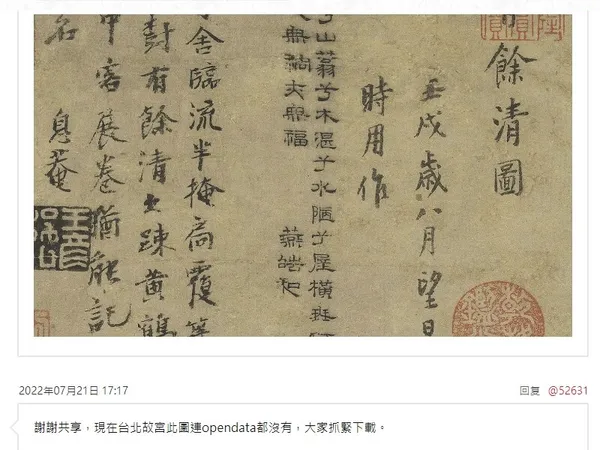 餘清圖
壬戌歲八月望日
時用作
山蓊兮木湛兮水陋兮屋橫
無禍
無福
舍臨流半掩扃覆
對有餘清
疎黃鶴
客展卷猶能記
名 息菴
2022年07月21日 17:17
回复 @52631
謝謝共享，現在台北故宮此圖連opendata都沒有，大家抓緊下載。